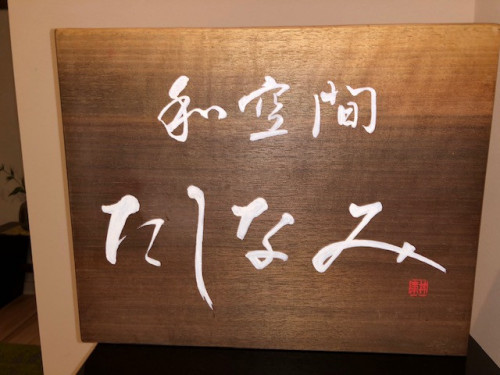 和空間
たしなみ